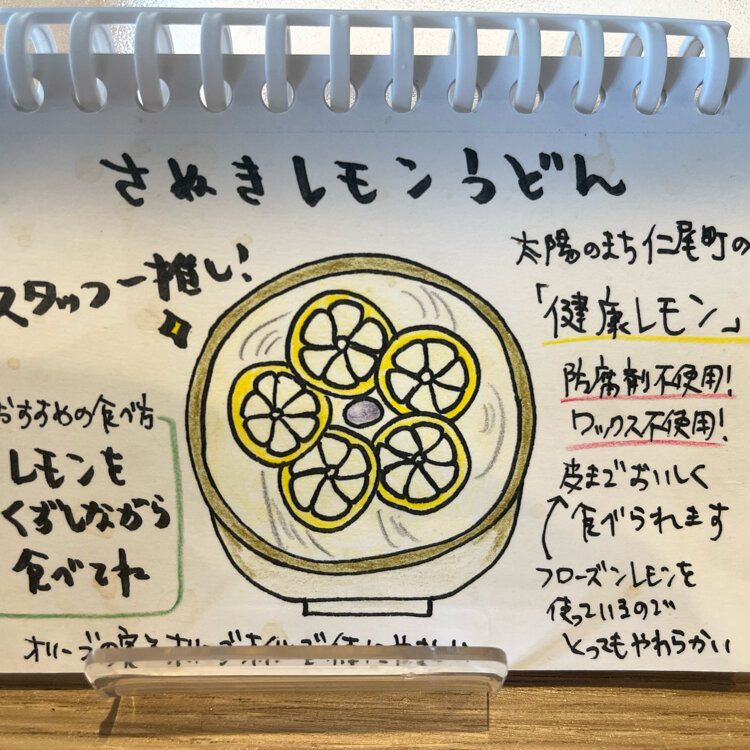 さぬきレモンうどん
スタッフ一推し!
太陽のまち仁尾町の
「健康レモン」
防腐剤不使用!
ワックス不使用!
皮までおいしく
食べられます
フローズンレモンを
使っているので
とってもやわらかい
おすすめの食べ方
レモンを
くずしながら
食べてね
オリーブの実と